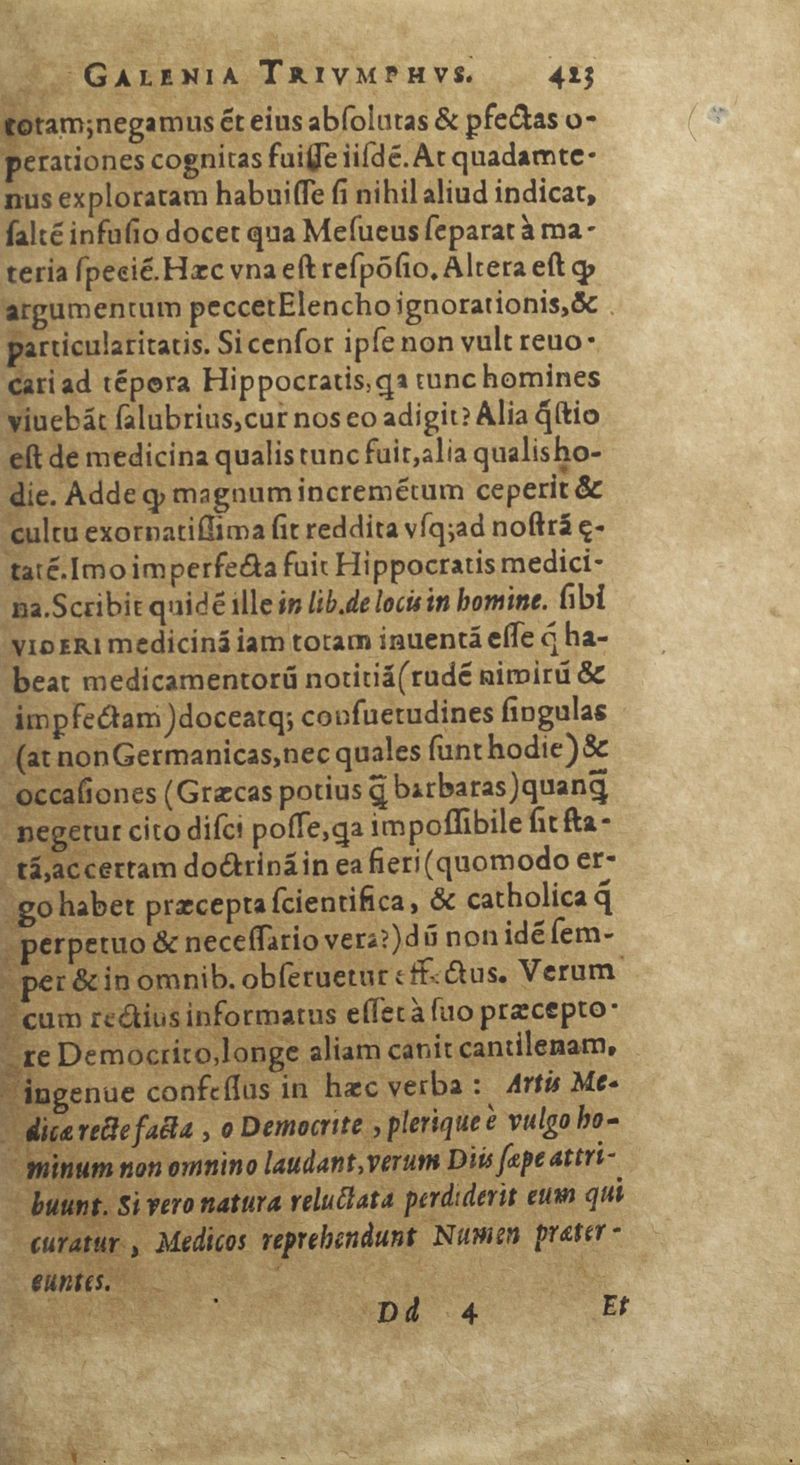 GALENIA TRIVMPHVS. 425
totam;negamus ét eius abſolutas & pfectas o-
perationes cognitas fuiſſe iiſdē. At quadamte-
nus exploratam habuiſſe ſi nihil aliud indicat,
ſaltē infuſio docet qua Meſueus ſeparat à ma-
teria ſpeciē. Hæc vna eſt reſpōſio. Altera eſt ꝙ
argumentum peccet Elencho ignorationis, &
particularitatis. Si cenſor ipſe non vult reuo-
cari ad tēpora Hippocratis, qa tunc homines
viuebāt ſalubrius, cur nos eo adigit? Alia q̄ſtio
eſt de medicina qualis tunc fuit, alia qualis ho-
die. Adde ꝙ magnum incremētum ceperit &
cultu exornatiſſima ſit reddita vſq; ad noſtrā ę-
tatē. Imo imperfecta fuit Hippocratis medici-
na. Scribit quidē ille in lib. de locis in homine. ſibi
VIDERI medicinā iam totam inuentā eſſe q̄ ha-
beat medicamentorū notitiā (rudē nimirū &
impfectam) doceatq; conſuetudines ſingulas
(at non Germanicas, nec quales ſunt hodie) &
occaſiones (Græcas potius q̄ barbaras) quanq̄
negetur cito diſci poſſe, qa impoſſibile ſit ſta-
tā, ac certam doctrinā in ea fieri (quomodo er-
go habet præcepta ſcientifica, & catholica q̄
perpetuo & neceſſario vera?) dū non idē ſem-
per & in omnib. obſeruetur effectus. Verum
cum rectius informatus eſſet à ſuo præcepto-
re Democrito, longe aliam canit cantilenam,
ingenue confeſſus in hæc verba : Artis Me-
dicæ recte facta , o Democrite , plerique è vulgo ho-
minum non omnino laudant, verum Diis ſæpe attri-
buunt. Si vero natura reluctata perdiderit eum qui
curatur , Medicos reprehendunt Numen præter-
euntes.
Dd 4 Et